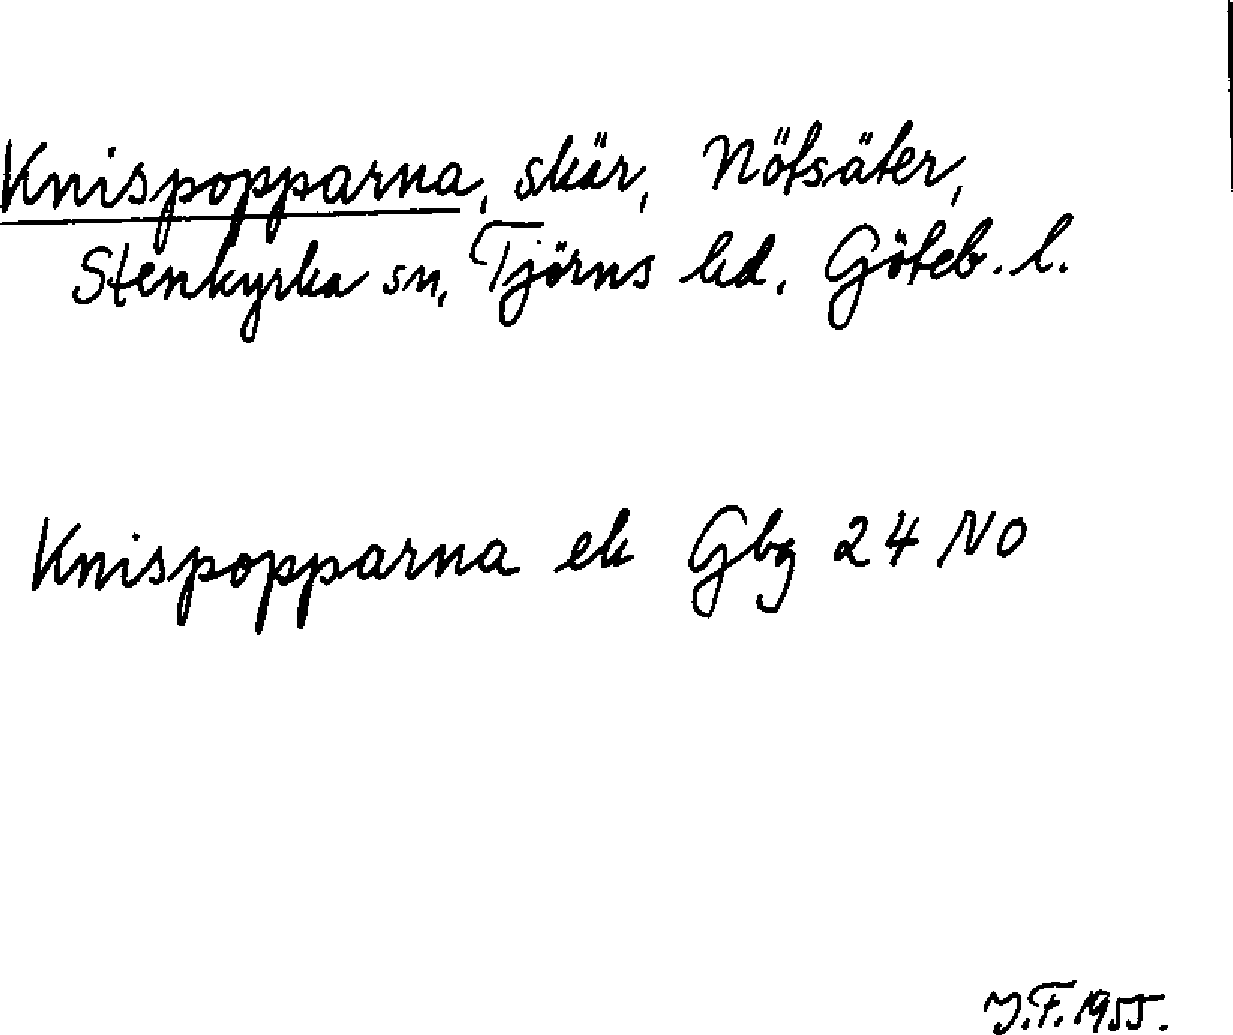 Knispopparna, skär, Nötsäter,
Stenkyrka sn, Tjörns hd. Göteb. l.
Knispopparna ek Gbg 24 NO
J.F. 1955.